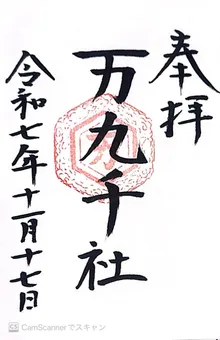 奉拝
万九千社
令和七年十一月十七日
CamScannerでスキャン